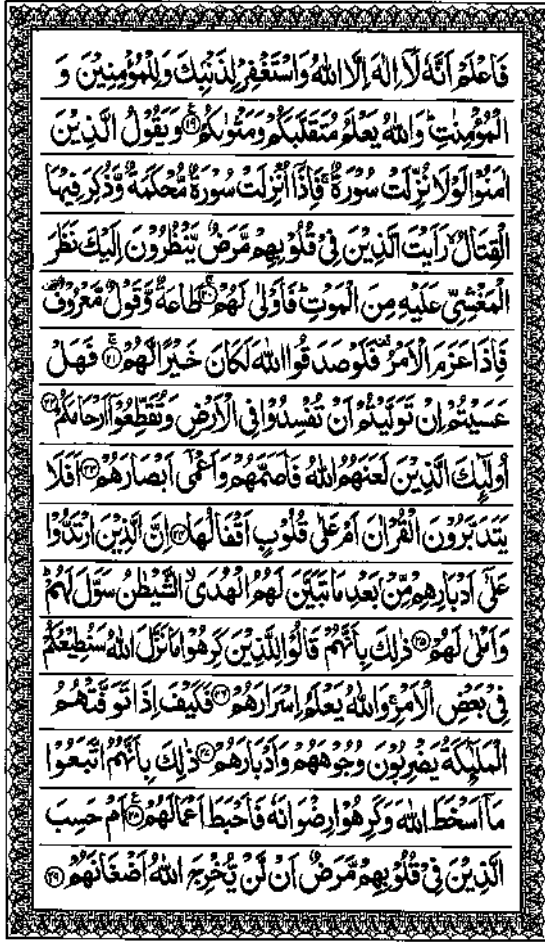 فَاعْلَمْ اَنَّهٗ لَاۤ اِلٰهَ اِلَّا اللّٰهُ وَاسْتَغْفِرْ لِذَنْۢبِكَ وَلِلْمُؤْمِنِیْنَ وَ
الْمُؤْمِنٰتِ ؕ وَاللّٰهُ یَعْلَمُ مُتَقَلَّبَكُمْ وَمَثْوٰىكُمْ ﴿۱۹﴾ وَیَقُوْلُ الَّذِیْنَ
اٰمَنُوْا لَوْلَا نُزِّلَتْ سُوْرَةٌ ۚ فَاِذَاۤ اُنْزِلَتْ سُوْرَةٌ مُّحْكَمَةٌ وَّذُكِرَ فِیْهَا
الْقِتَالُ ۙ رَاَیْتَ الَّذِیْنَ فِیْ قُلُوْبِهِمْ مَّرَضٌ یَّنْظُرُوْنَ اِلَیْكَ نَظَرَ
الْمَغْشِیِّ عَلَیْهِ مِنَ الْمَوْتِ ؕ فَاَوْلٰی لَهُمْ ﴿۲۰﴾ طَاعَةٌ وَّقَوْلٌ مَّعْرُوْفٌ
فَاِذَا عَزَمَ الْاَمْرُ فَلَوْ صَدَقُوا اللّٰهَ لَكَانَ خَیْرًا لَّهُمْ ﴿۲۱﴾ فَهَلْ
عَسَیْتُمْ اِنْ تَوَلَّیْتُمْ اَنْ تُفْسِدُوْا فِی الْاَرْضِ وَتُقَطِّعُوْۤا اَرْحَامَكُمْ ﴿۲۲﴾
اُولٰٓىِٕكَ الَّذِیْنَ لَعَنَهُمُ اللّٰهُ فَاَصَمَّهُمْ وَاَعْمٰۤی اَبْصَارَهُمْ ﴿۲۳﴾ اَفَلَا
یَتَدَبَّرُوْنَ الْقُرْاٰنَ اَمْ عَلٰی قُلُوْبٍ اَقْفَالُهَا ﴿۲۴﴾ اِنَّ الَّذِیْنَ ارْتَدُّوْا
عَلٰۤی اَدْبَارِهِمْ مِّنْۢ بَعْدِ مَا تَبَیَّنَ لَهُمُ الْهُدَی ۙ الشَّیْطٰنُ سَوَّلَ لَهُمْ ؕ
وَاَمْلٰی لَهُمْ ﴿۲۵﴾ ذٰلِكَ بِاَنَّهُمْ قَالُوْا لِلَّذِیْنَ كَرِهُوْا مَا نَزَّلَ اللّٰهُ سَنُطِیْعُكُمْ
فِیْ بَعْضِ الْاَمْرِ ۖۚ وَاللّٰهُ یَعْلَمُ اِسْرَارَهُمْ ﴿۲۶﴾ فَكَیْفَ اِذَا تَوَفَّتْهُمُ
الْمَلٰٓىِٕكَةُ یَضْرِبُوْنَ وُجُوْهَهُمْ وَاَدْبَارَهُمْ ﴿۲۷﴾ ذٰلِكَ بِاَنَّهُمُ اتَّبَعُوْا
مَاۤ اَسْخَطَ اللّٰهَ وَكَرِهُوْا رِضْوَانَهٗ فَاَحْبَطَ اَعْمَالَهُمْ ﴿۲۸﴾ اَمْ حَسِبَ
الَّذِیْنَ فِیْ قُلُوْبِهِمْ مَّرَضٌ اَنْ لَّنْ یُّخْرِجَ اللّٰهُ اَضْغَانَهُمْ ﴿۲۹﴾